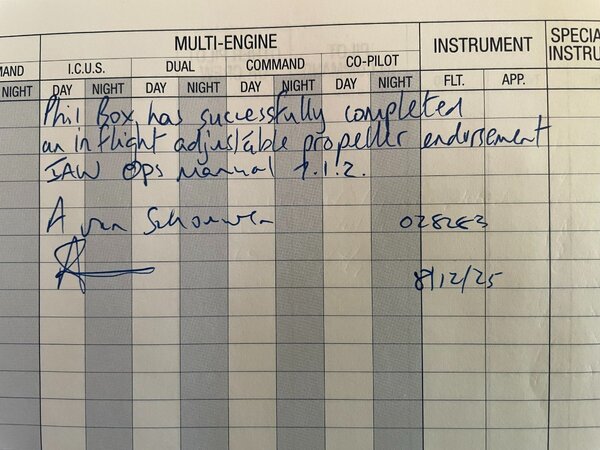 MULTI-ENGINE INSTRUMENT SPECIA
INSTRU
MAND I.C.U.S. DUAL COMMAND CO-PILOT
NIGHT DAY NIGHT DAY NIGHT DAY NIGHT DAY NIGHT FLT. APP.
Phil Box has successfully completed
an inflight adjustable propeller endorsement
IAW Ops manual
A van
8/12/25